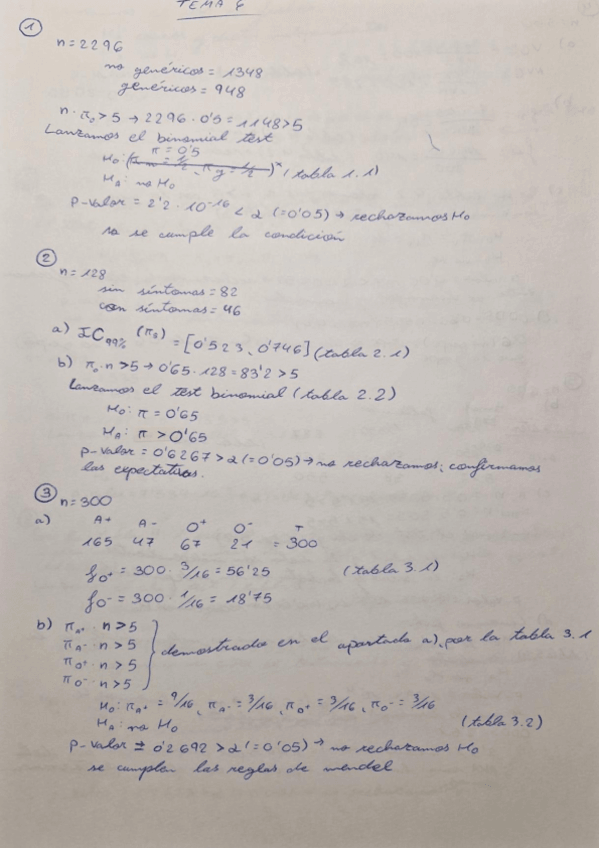 TEMA 6
1
n = 2296
no genéricos = 1348
genéricos = 948
n · π₀ > 5 → 2296 · 0'5 = 1148 > 5
Lanzamos el binomial test
H₀: π = 0'5 (tabla 1.1)
HA: no H₀
P-valor = 2'2 · 10⁻¹⁶ < α (=0'05) → rechazamos H₀
no se cumple la condición
2
n = 128
sin síntomas = 82
con síntomas = 46
a) IC99% (πs) = [0'523, 0'746] (tabla 2.1)
b) π₀ · n > 5 → 0'65 · 128 = 83'2 > 5
Lanzamos el test binomial (tabla 2.2)
H₀: π = 0'65
HA: π > 0'65
P-valor = 0'6267 > α (=0'05) → no rechazamos; confirmamos
las expectativas.
3
n = 300
a) A+ A- O+ O- T
165 47 67 21 = 300
fO+ = 300 · 3/16 = 56'25 (tabla 3.1)
fO- = 300 · 1/16 = 18'75
b) πA+ · n > 5
πA- · n > 5
πO+ · n > 5
πO- · n > 5
demostrado en el apartado a), por la tabla 3.1
H₀: πA+ = 9/16, πA- = 3/16, πO+ = 3/16, πO- = 3/16
HA: no H₀ (tabla 3.2)
P-valor = 0'2692 > α (=0'05) → no rechazamos H₀
se cumplen las reglas de mendel